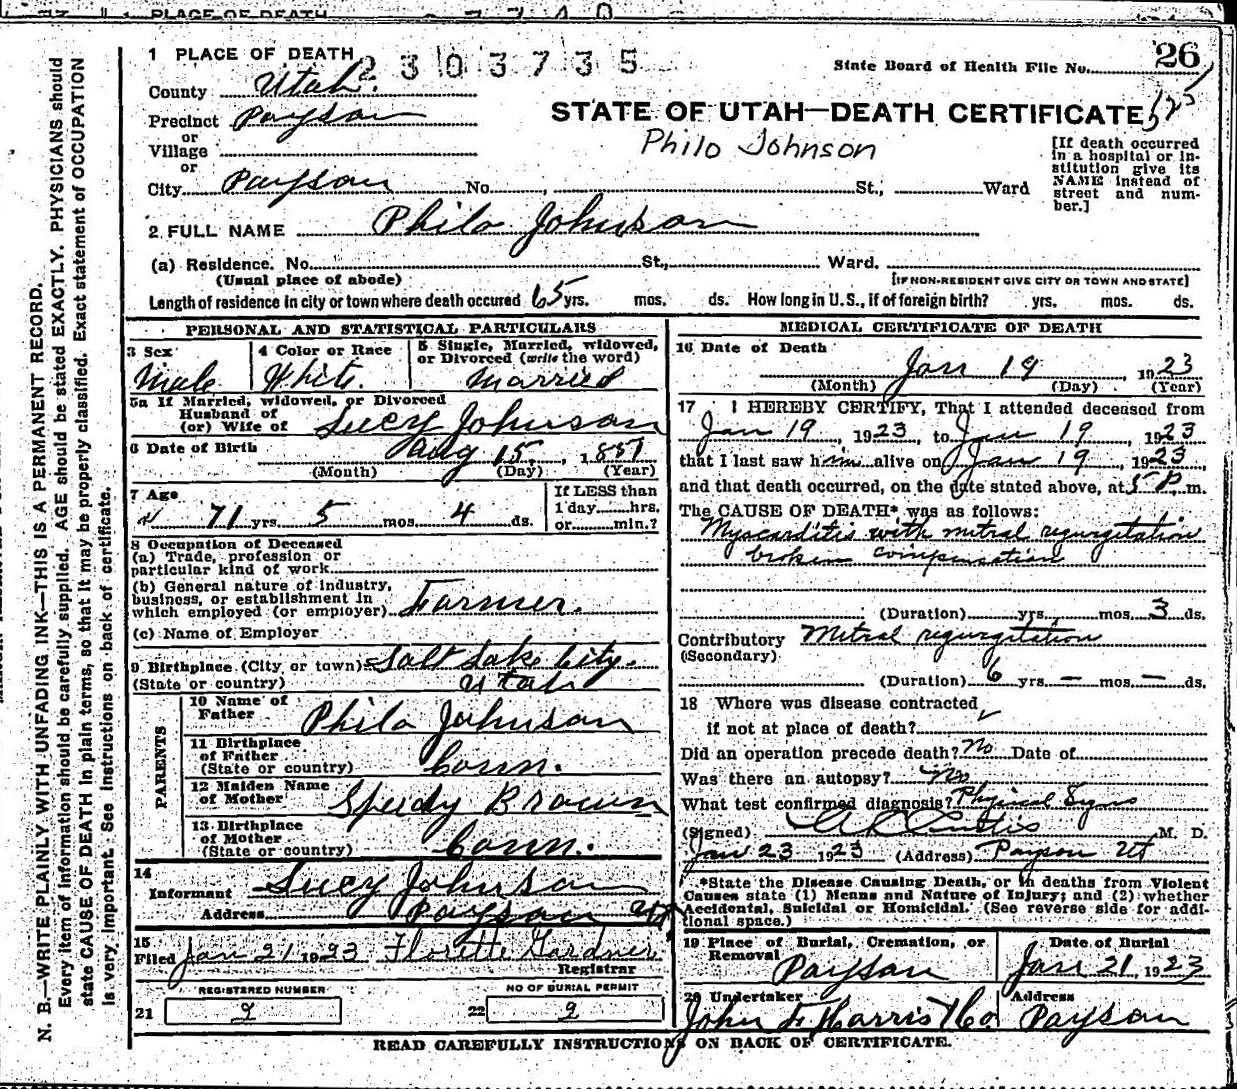 PLACE OF DEATH
1 PLACE OF DEATH
2303735
State Board of Health File No. 26
County Utah.
STATE OF UTAH—DEATH CERTIFICATE
Precinct Payson
Philo Johnson
or
Village
or
City Payson No. , St., Ward
[If death occurred
in a hospital or in-
stitution give its
NAME instead of
street and num-
ber.]
2 FULL NAME Philo Johnson
(a) Residence. No. St., Ward.
(Usual place of abode)
[IF NON-RESIDENT GIVE CITY OR TOWN AND STATE]
Length of residence in city or town where death occured 65 yrs. mos. ds. How long in U.S., if of foreign birth? yrs. mos. ds.
PERSONAL AND STATISTICAL PARTICULARS
3 Sex
Male
4 Color or Race
White.
5 Single, Married, widowed,
or Divorced (write the word)
Married
5a If Married, widowed, or Divorced
Husband of
(or) Wife of Lucy Johnson
6 Date of Birth Aug 15, 1851
(Month) (Day) (Year)
7 Age
71 yrs. 5 mos. 4 ds.
If LESS than
1 day hrs.
or min.?
8 Occupation of Deceased
(a) Trade, profession or
particular kind of work
(b) General nature of industry,
business, or establishment in
which employed (or employer) Farmer.
(c) Name of Employer
9 Birthplace (City or town) Salt Lake City.
(State or country) Utah
PARENTS
10 Name of
Father Philo Johnson
11 Birthplace
of Father
(State or country) Conn.
12 Maiden Name
of Mother Speedy Brown
13 Birthplace
of Mother
(State or country) Conn.
14
Informant Lucy Johnson
Address Payson Ut
15
Filed Jan 21 1923 Florette Gardner
Registrar
REGISTERED NUMBER
21 9
NO OF BURIAL PERMIT
22 9
MEDICAL CERTIFICATE OF DEATH
16 Date of Death
Jan 19 1923
(Month) (Day) (Year)
17 I HEREBY CERTIFY, That I attended deceased from
Jan 19, 1923, to Jan 19, 1923
that I last saw him alive on Jan 19, 1923,
and that death occurred, on the date stated above, at 5 P. m.
The CAUSE OF DEATH* was as follows:
Myocarditis with mitral regurgitation
broken compensation
(Duration) yrs. mos. 3 ds.
Contributory Mitral regurgitation
(Secondary)
(Duration) 6 yrs. — mos. — ds.
18 Where was disease contracted
if not at place of death?
Did an operation precede death? No Date of
Was there an autopsy? No
What test confirmed diagnosis? Physical Signs
(Signed) A L Curtis M. D.
Jan 23 1923 (Address) Payson Ut
*State the Disease Causing Death, or in deaths from Violent
Causes state (1) Means and Nature of Injury; and (2) whether
Accidental, Suicidal or Homicidal. (See reverse side for addi-
tional space.)
19 Place of Burial, Cremation, or
Removal
Payson
Date of Burial
Jan 21, 1923
20 Undertaker
John F Harris & Co
Address
Payson
READ CAREFULLY INSTRUCTIONS ON BACK OF CERTIFICATE.
N. B.—WRITE PLAINLY WITH UNFADING INK—THIS IS A PERMANENT RECORD.
Every item of information should be carefully supplied. AGE should be stated EXACTLY. PHYSICIANS should
state CAUSE OF DEATH in plain terms, so that it may be properly classified. Exact statement of OCCUPATION
is very important. See instructions on back of certificate.